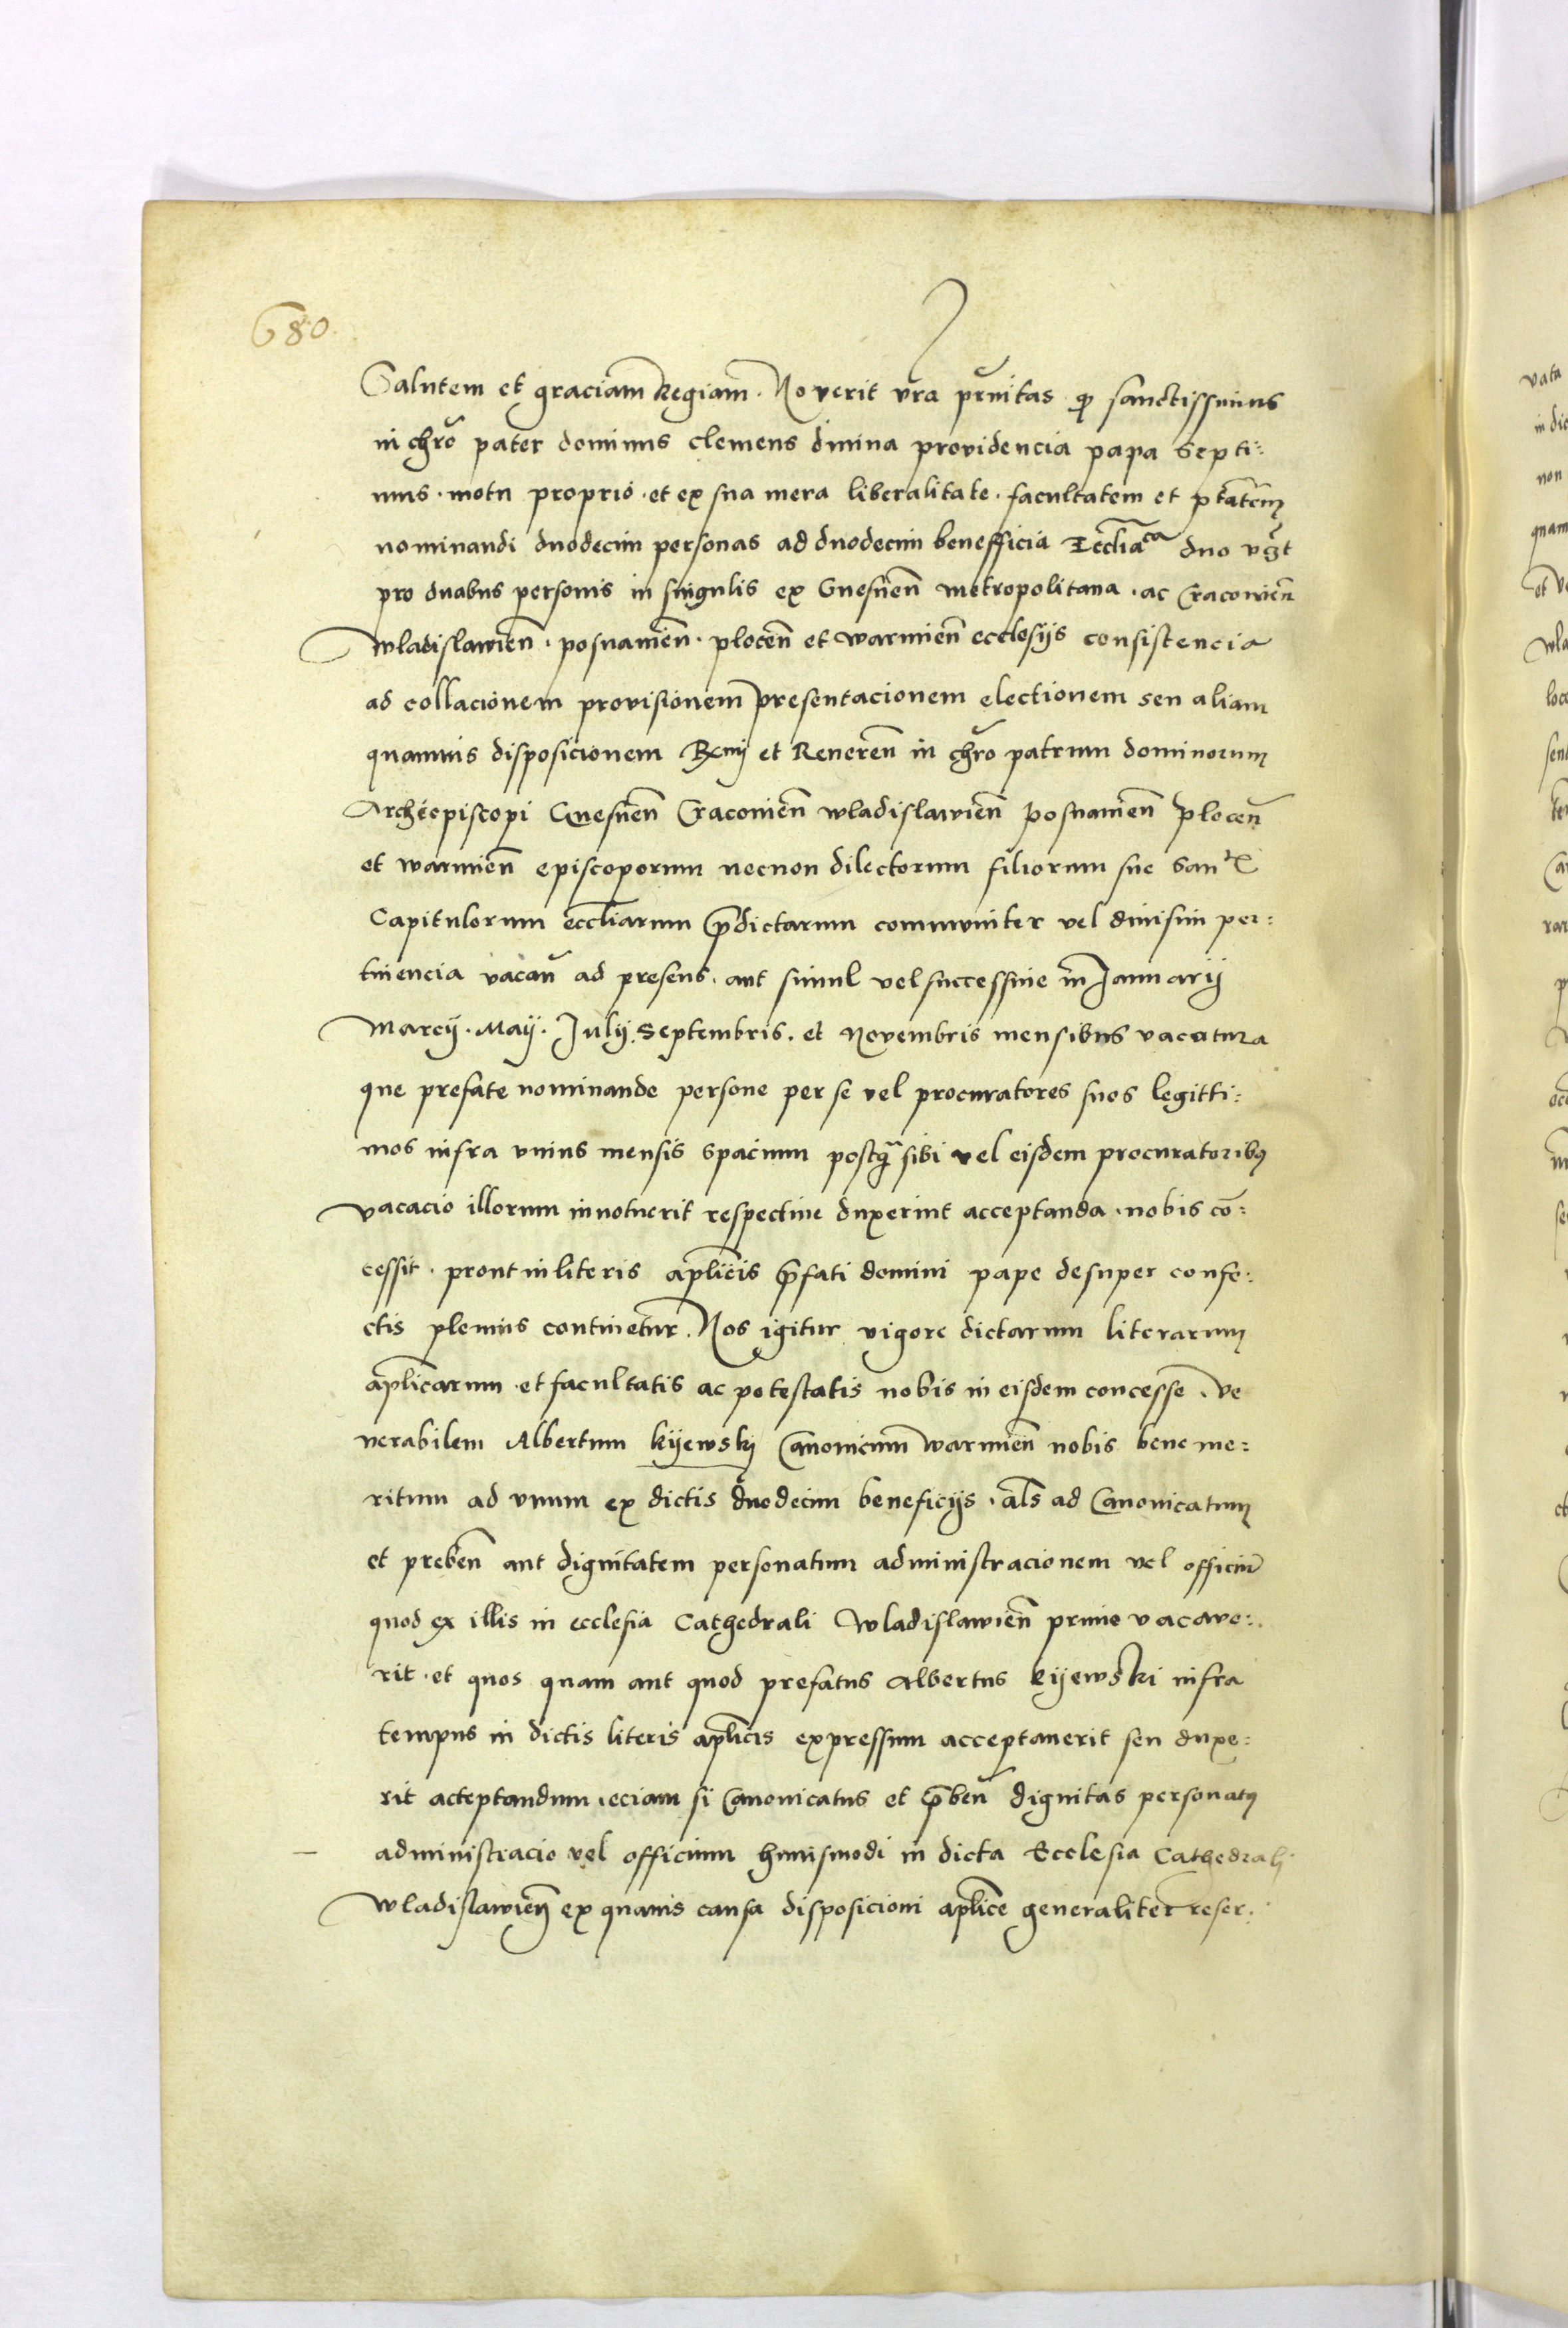 680
Salutem et graciam Regiam. Noverit vra prnitas qp sanctissimus
in chro pater dominus clemens divina providencia papa Septi:
mus. motu proprio. et ex sua mera liberalitate. facultatem et ptatem
nominandi duodecim personas ad duodecim benefficia Ecclia ca duo vzt
pro duabus personis in singulis ex Gnesnen metropolitana. ac Cracovien
Wladislavien. posnanien. plocen et warmien ecclesijs consistencia
ad collacionem provisionem presentacionem electionem seu aliam
quamvis disposicionem Rmi et Reveren in chro patrum dominorum
Archiepiscopi Gnesnen Cracovien wladislavien posnanien plocen
et warmien episcoporum necnon dilectorum filiorum sue San tis
Capitulorum eccliarum pdictarum communiter vel divisim per:
tinencia vacan ad presens. aut simul vel successive in Januarij
Marcij. Maij. Julij. Septembris. et Novembris mensibus vacatura
que prefate nominande persone per se vel procuratores suos legitti:
mos infra unius mensis spacium postq sibi vel eisdem procuratoribus
vacacio illorum innotuerit respective duxerint acceptanda. nobis co:
cessit. prout in literis aplicis pfati domini pape desuper confe:
ctis plenius continetur. Nos igitur vigore dictarum literarum
aplicarum. et facultatis ac potestatis nobis in eisdem concesse. Ve
nerabilem Albertum kijewskj Canonicum warmien nobis bene me:
ritum ad unum ex dictis duodecim beneficijs. als ad Canonicatum
et preben aut dignitatem personatum administracionem vel officiu
quod ex illis in ecclesia Cathedrali Wladislavien primo vacave:
rit. et quos quam aut quod prefatus Albertus kijewski infra
tempus in dictis literis aplicis expressum acceptaverit seu duxe:
rit acceptandum. eciam si Canonicatus et pben dignitas personatus
administracio vel officium huiusmodi in dicta Ecclesia Cathedrali
Wladislavien ex quavis causa disposicioni aplice generaliter reser: